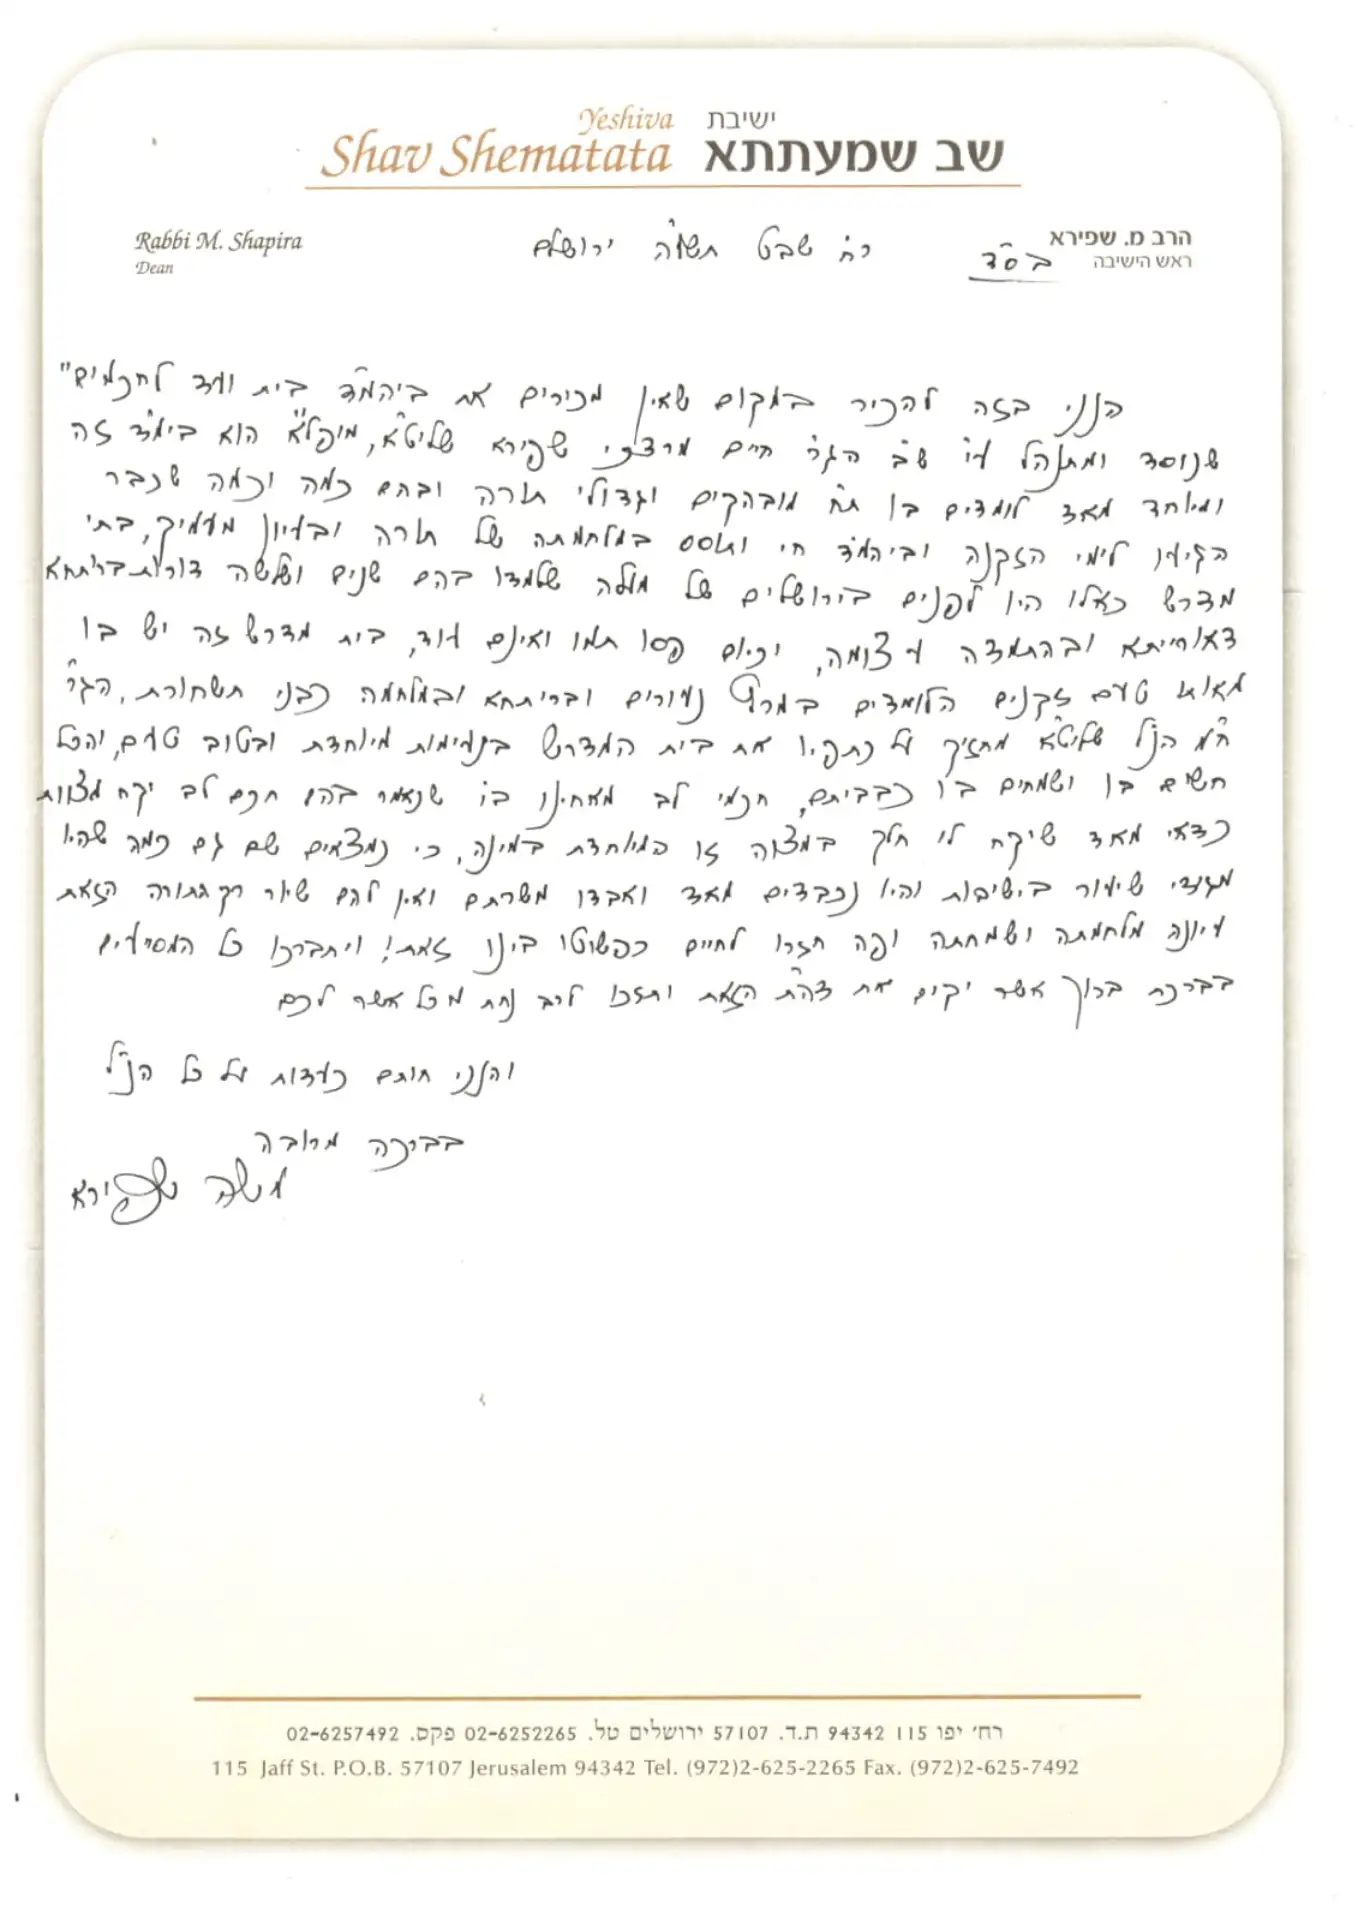 Yeshiva ישיבת
Shav Shematata שב שמעתתא
הרב מ. שפירא
ראש הישיבה
Rabbi M. Shapira
Dean
בס"ד
ר"ח שבט ירושלם
הנני בזה להכיר במקום שאין מכירים את ביהמ"ד בית ועד לחכמים"
שנוסד ומתנהל ע"י הגר"ח חיים מרדכי שפירא שליט"א, מופלא הוא בימ"ד זה
ומיוחד מאד לומדים בו ת"ח מובהקים וגדולי תורה ובהם כמה וכמה שכבר
הגיעו לימי הזקנה וביהמ"ד חי ותוסס במלחמתה של תורה ובעיון מעמיק, בתי
מדרש כאלו היו לפנים בירושלים של מעלה שלמדו בהם שנים ושלשה דורות בריתחא
דאורייתא ובהתמדה עצומה, וכיום פסו תמו ואינם עוד, בית מדרש זה יש בו
מאותו טעם זקנים הלומדים במרץ נעורים ובריתחא ובמלחמה כבני תשחורת, הגר"ר
ח"מ הנ"ל שליט"א מחזיק על כתפיו את בית המדרש בנעימות מיוחדת ובטוב טעם, והכל
חשים בו ושמחים בו כבביתם, חכמי לב מאחינו ב"י שנאמר בהם חכם לב יקח מצוות
כדאי מאד שיקח לו חלק במצוה זו המיוחדת במינה, כי נמצאים שם גם כמה שהיו
מגידי שיעור בישיבות והיו נכבדים מאד ואבדו משרתם ואין להם שיור רק התורה הזאת
עיונה מלחמתה ושמחתה ופה חזרו לחיים כפשוטו בינו זאת! ויתברכו כל המסייעים
בברכת ברוך אשר יקים את דה"ת הזאת ותזכו לרב נחת מכל אשר לכם
והנני חותם כעדות על כל הנ"ל
בברכה מרובה
משה שפירא
רח' יפו 115 94342 ת.ד. 57107 ירושלים טל. 02-6252265 פקס. 02-6257492
115 Jaff St. P.O.B. 57107 Jerusalem 94342 Tel. (972)2-625-2265 Fax. (972)2-625-7492